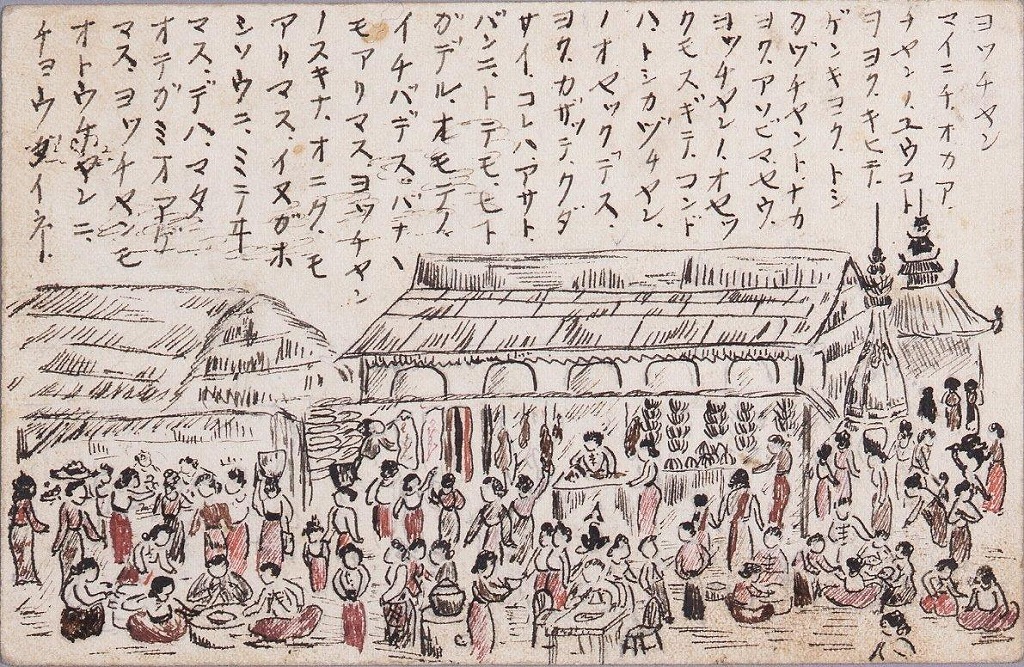 ヨツチヤン
マイニチ、オカア、
チヤンノ、ユウコト
ヲヨク、キヒテ、
ゲンキヨク、トシ
カヅチヤント、ナカ
ヨク、アソビマセウ、
ヨツチヤンノ、オセツ
クモスギテ、コンド
ハ、トシカヅチヤン、
ノオセツクデス、
ヨク、カザツテ、クダ
サイ、コレハ、アサト、
バンニ、トテモ、ヒト
ガデル、オモテノ、
イチバデス、バナヽ
モアリマス、ヨツチヤン
ノスキナ、オニク、モ
アリマス、イヌガホ
シソウニ、ミテヰ
マス、デハ、マタ、
オテガミオアゲ
マス、ヨツチヤンモ
オトウチヤンニ、
チヨウダイネー、